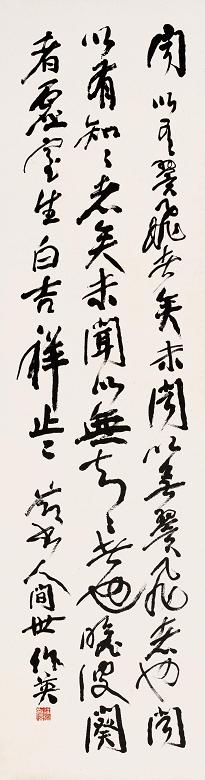 聞以有翼飛者矣未聞以無翼飛者也聞
以有知〻者矣未聞以無知〻者也瞻彼闋
者虛室生白吉祥止〻 人間世 作英